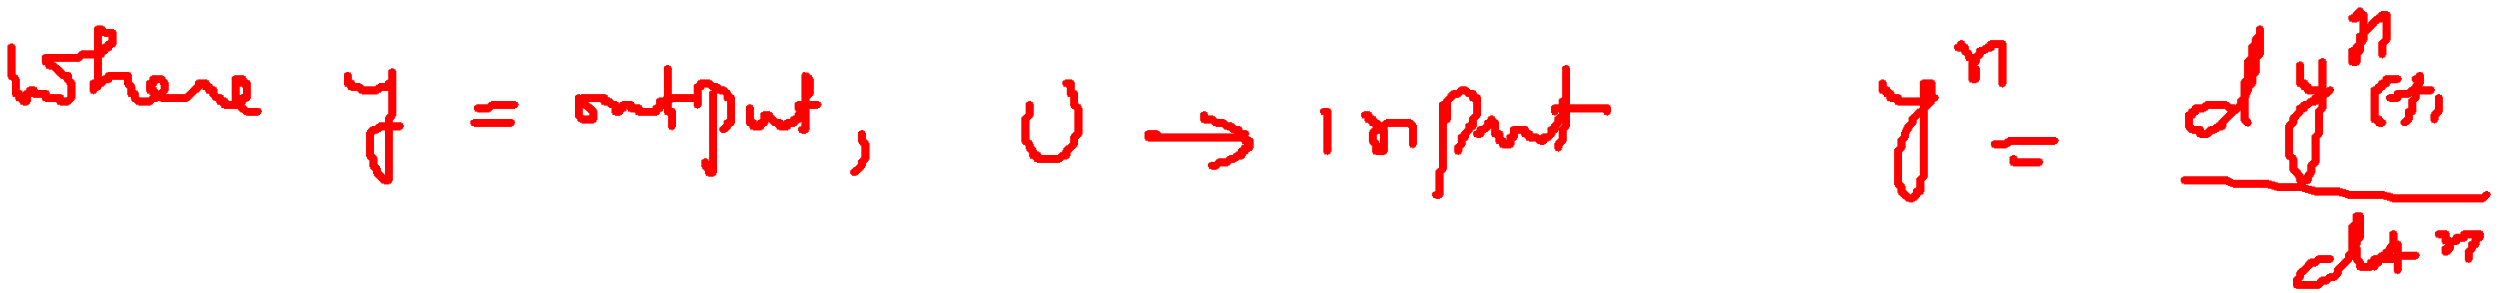 when y = output, u → input y^n = d^n y(t) / dt^n